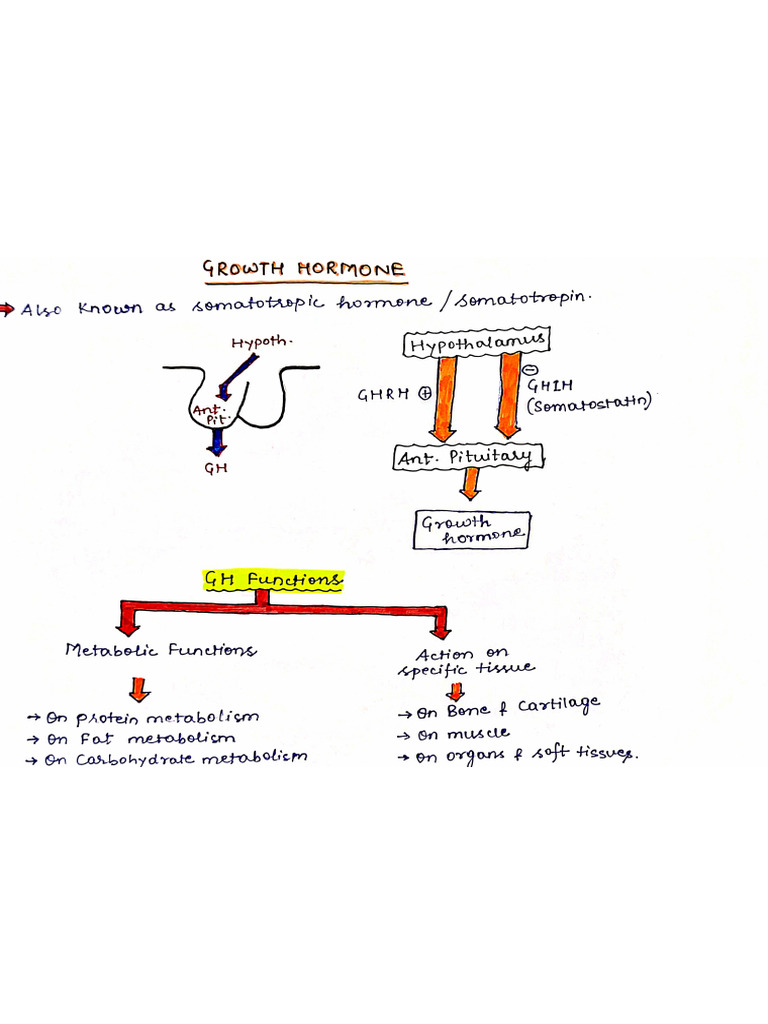 GROWTH HORMONE
Also Known as somatotropic hormone / somatotropin.
Hypoth.
Ant.
Pit.
GH
Hypothalamus
GHRH ⊕
⊖
GHIH
(Somatostatin)
Ant. Pituitary
Growth
hormone
GH Functions
Metabolic Functions
→ On protein metabolism
→ On Fat metabolism
→ On Carbohydrate metabolism
Action on
specific tissue
→ On Bone & Cartilage
→ On muscle
→ On organs & soft tissues.